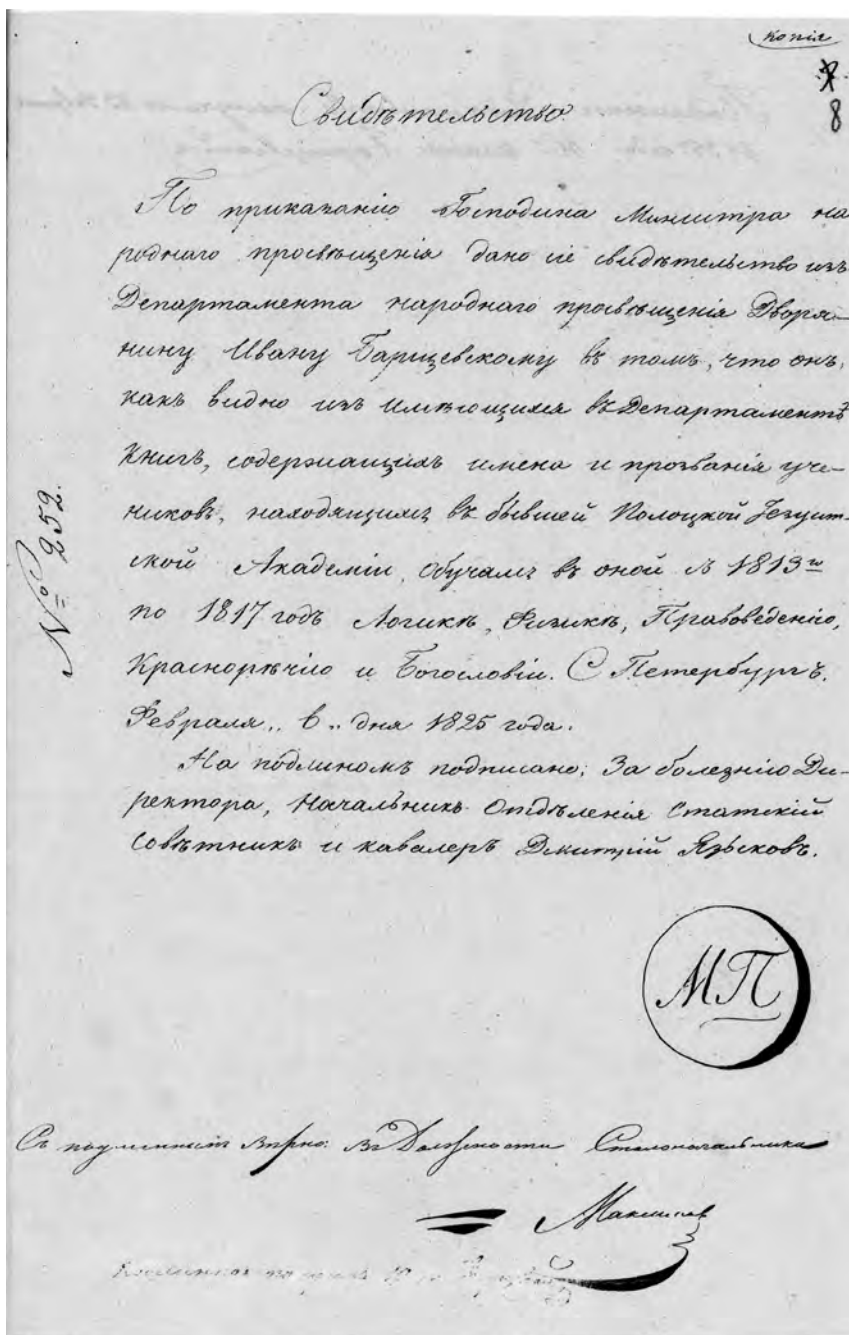 копія
8
Свидѣтельство.
По приказанію Господина Министра на
роднаго просвѣщенія дано сіе свидѣтельство изъ
Департамента народнаго просвѣщенія Дворя-
нину Ивану Барщевскому въ томъ, что онъ,
какъ видно изъ имѣющихся въ Департаментѣ
Книгъ, содержащихъ имена и прозванія уче-
никовъ, находящихся въ бывшей Полоцкой Іезуит-
ской Академіи, обучался въ оной съ 1813го
по 1817 годъ Логикѣ, Физикѣ, Правоведенію,
Краснорѣчію и Богословіи. С Петербургъ.
Февраля „ 6 „ дня 1825 года.
На подлиномъ подписано: За болезнію Ди-
ректора, Начальникъ Отдѣленія Статскій
Совѣтникъ и кавалеръ Дмитрій Языковъ.
№ 252.
МП
Съ подлиннымъ вѣрно: Въ Должности Столоначальника